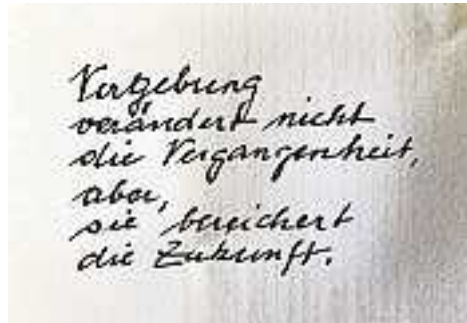 Vergebung
verändert nicht
die Vergangenheit,
aber,
sie bereichert
die Zukunft.